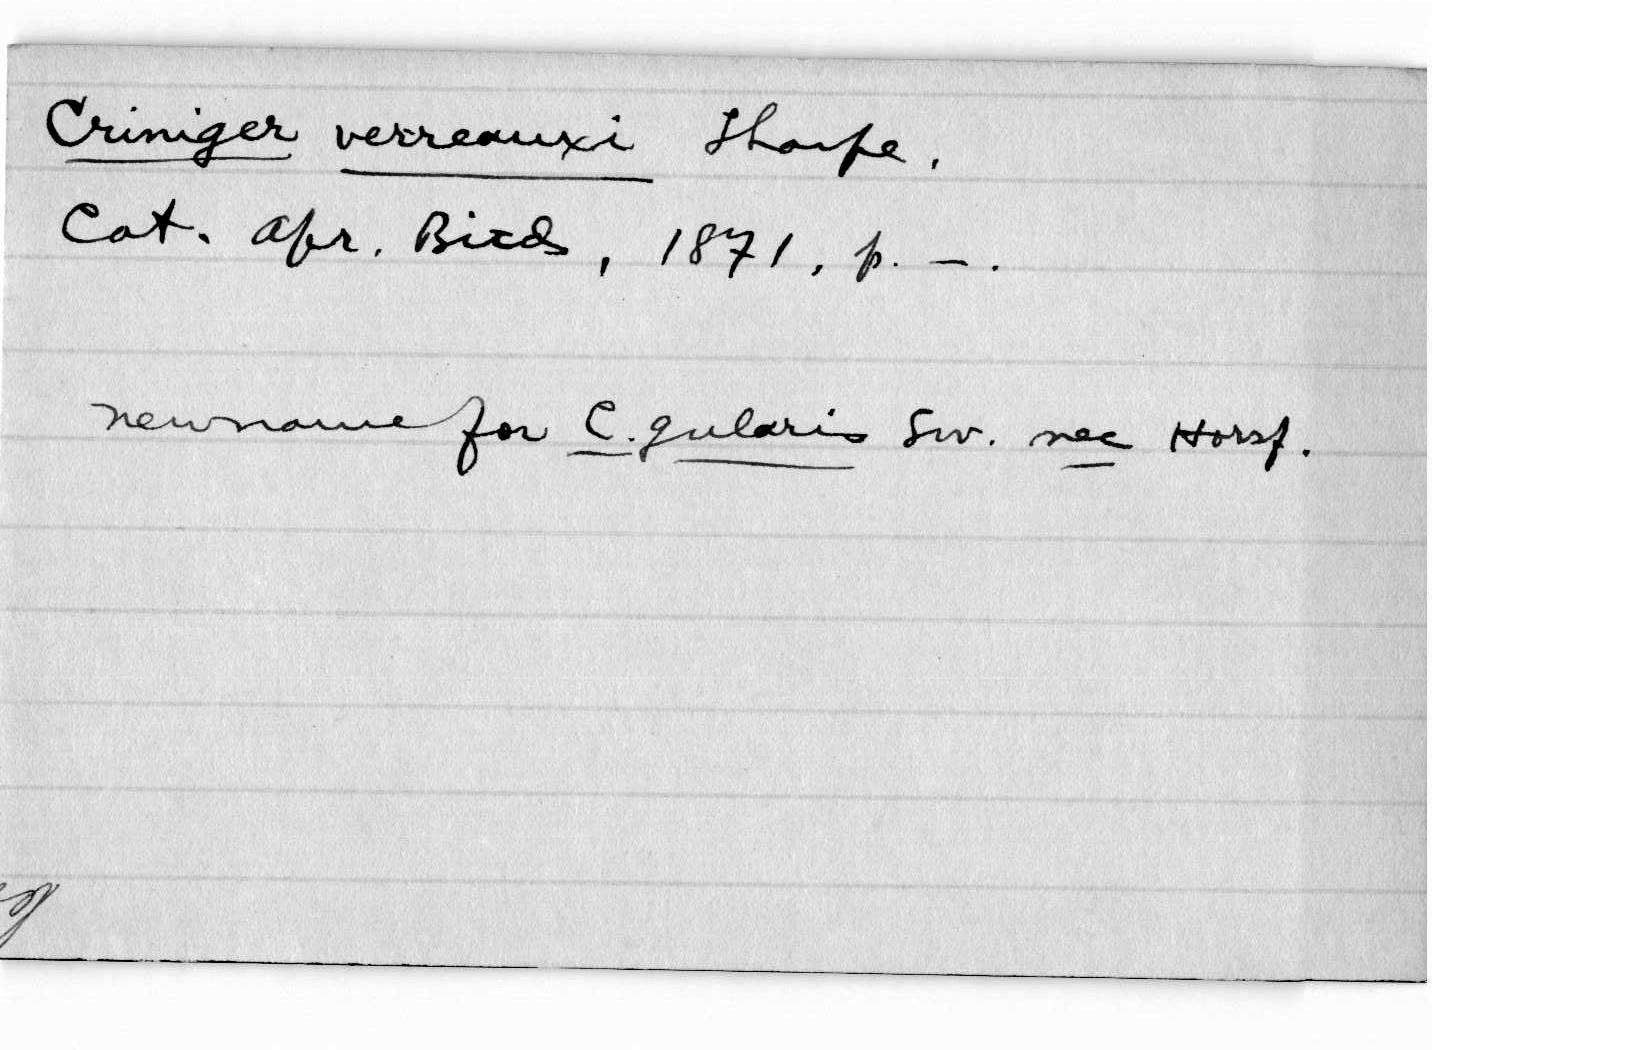 Criniger verreauxi Sharpe.
Cat. Afr. Birds, 1871, p. – .
new name for C. gularis Sw. nec Horsf.